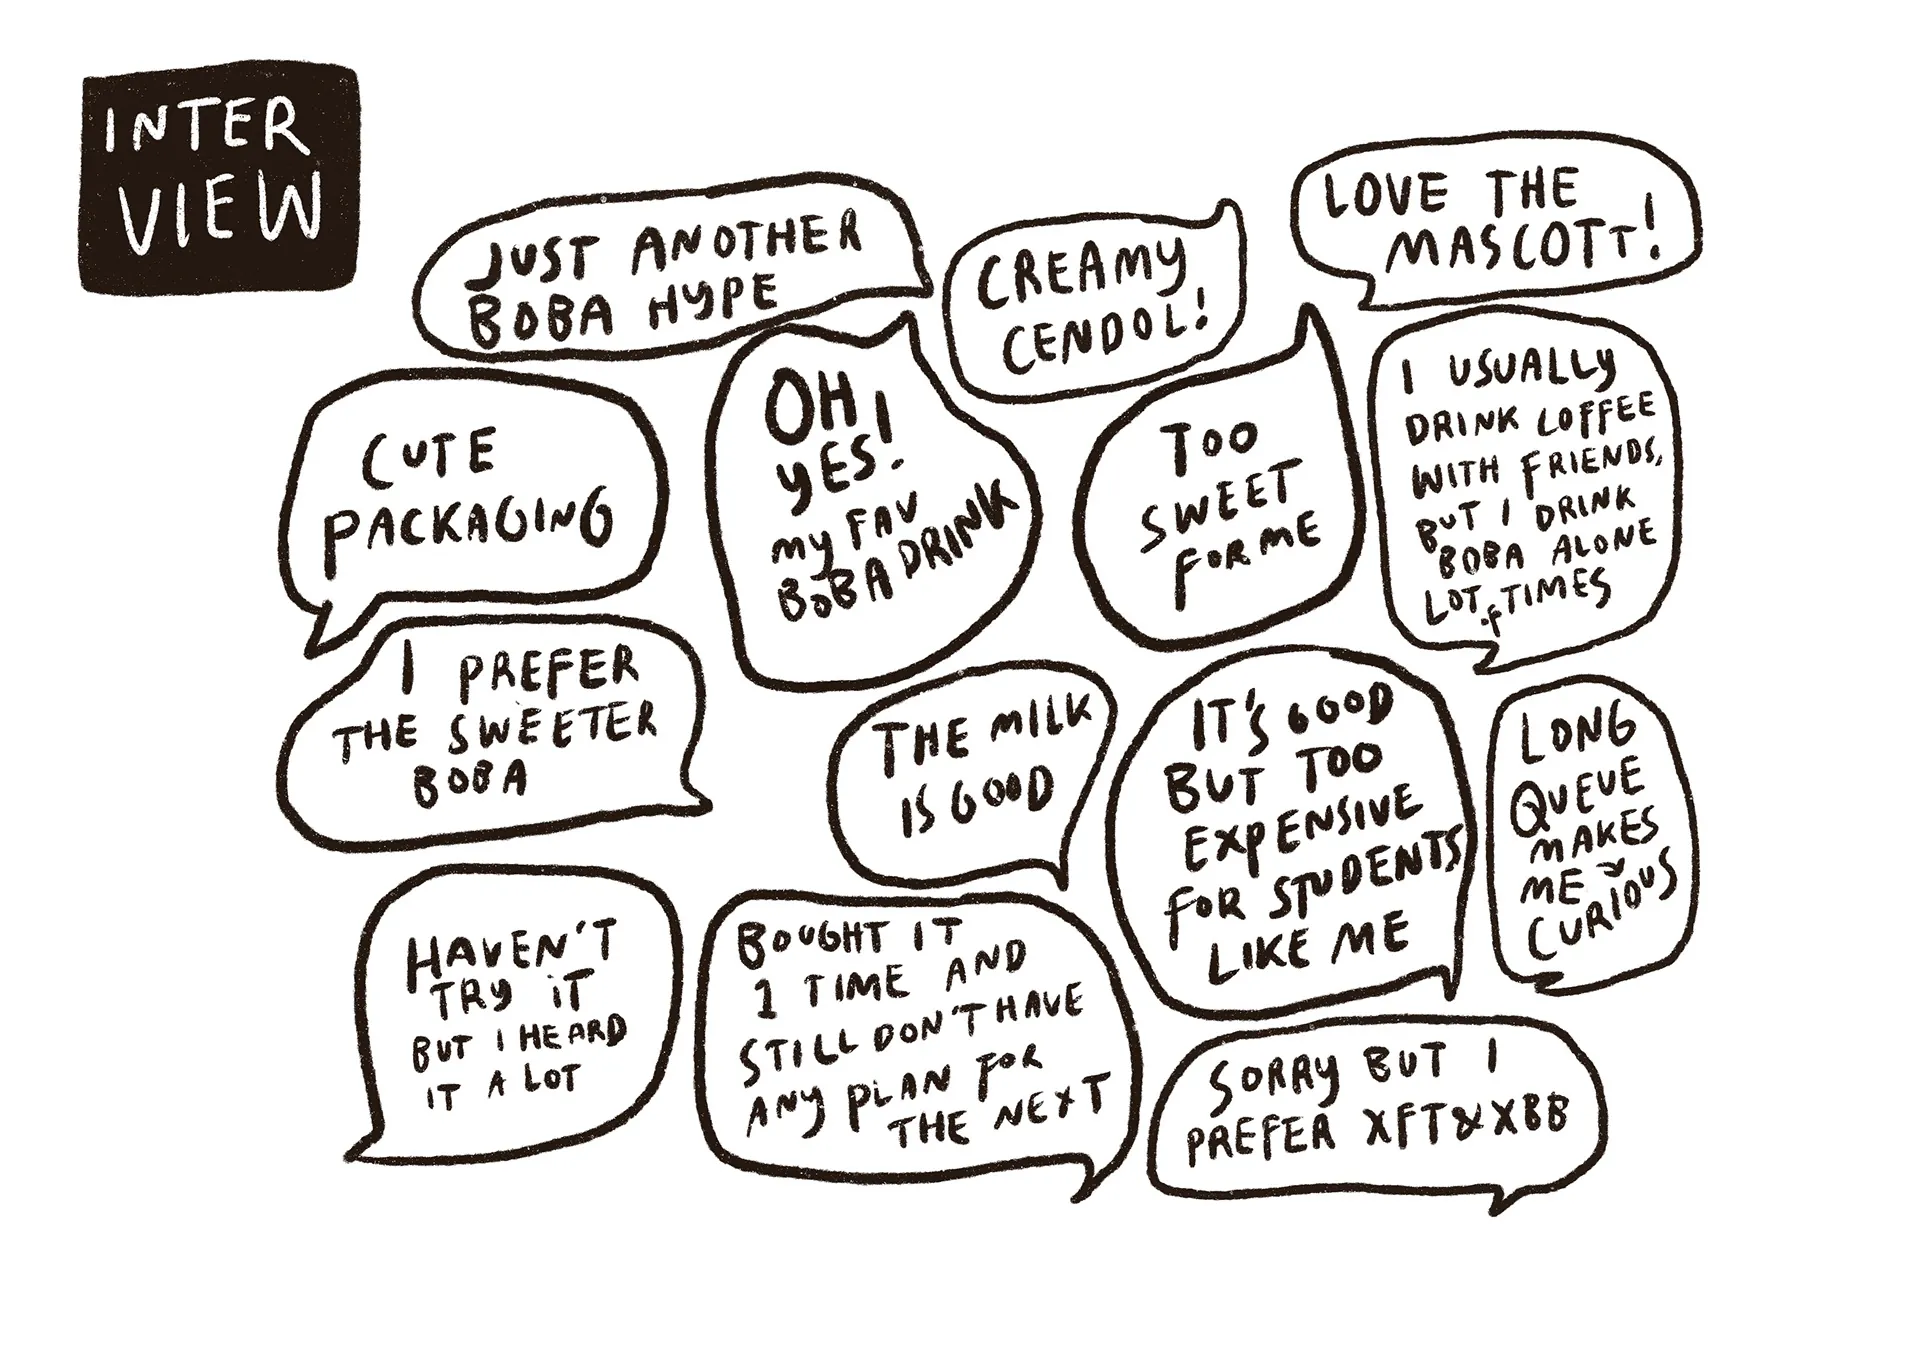 INTER
VIEW
JUST ANOTHER
BOBA HYPE
CREAMY
CENDOL!
LOVE THE
MASCOTT!
CUTE
PACKAGING
OH
YES!
MY FAV
BOBA DRINK
TOO
SWEET
FOR ME
I USUALLY
DRINK COFFEE
WITH FRIENDS,
BUT I DRINK
BOBA ALONE
LOT OF TIMES
I PREFER
THE SWEETER
BOBA
THE MILK
IS GOOD
IT'S GOOD
BUT TOO
EXPENSIVE
FOR STUDENTS
LIKE ME
LONG
QUEUE
MAKES
ME
CURIOUS
HAVEN'T
TRY IT
BUT I HEARD
IT A LOT
BOUGHT IT
1 TIME AND
STILL DON'T HAVE
ANY PLAN FOR
THE NEXT
SORRY BUT I
PREFER XFT&XBB